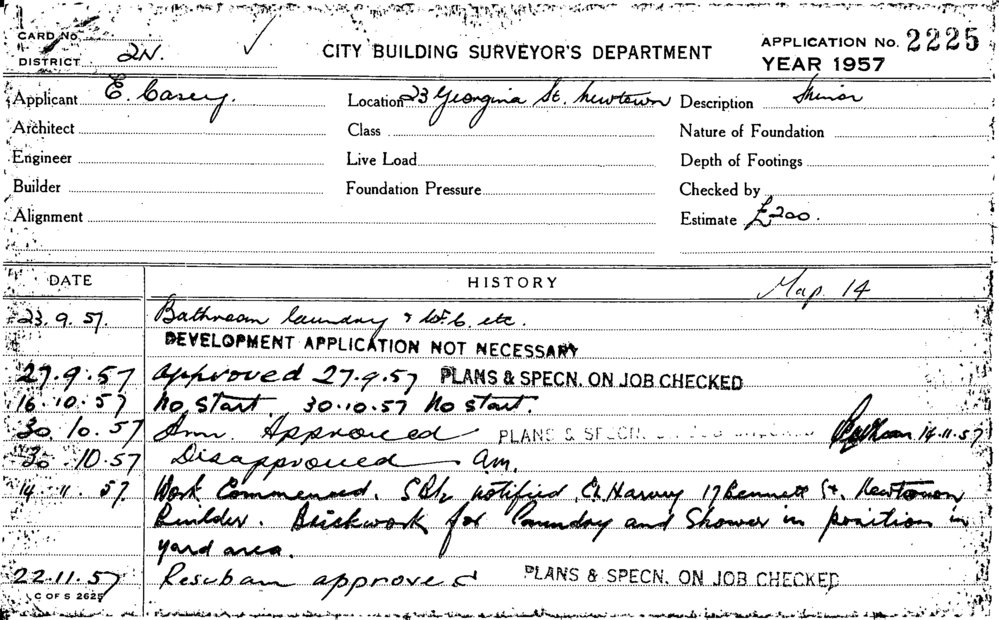 CARD No.
DISTRICT 2N.
CITY BUILDING SURVEYOR'S DEPARTMENT
APPLICATION No. 2225
YEAR 1957
Applicant E. Casey.
Location 23 Georgina St. Newtown
Description Minor
Architect
Class
Nature of Foundation
Engineer
Live Load
Depth of Footings
Builder
Foundation Pressure
Checked by
Alignment
Estimate £200.
DATE HISTORY Map. 14
23.9.57. Bathroom laundry & W.C. etc.
DEVELOPMENT APPLICATION NOT NECESSARY
27.9.57 Approved 27.9.57 PLANS & SPECN. ON JOB CHECKED
16.10.57 No start. 30.10.57 No start.
30.10.57 Approved PLANS & SPECN. ON JOB CHECKED 14.11.57
30.10.57 Disapproved am.
14.11.57. Work Commenced. notified Harvey 17 Bennett St. Newtown
Builder. Brickwork for laundry and Shower in position in
yard area.
22.11.57 approved PLANS & SPECN. ON JOB CHECKED
C OF S 2625